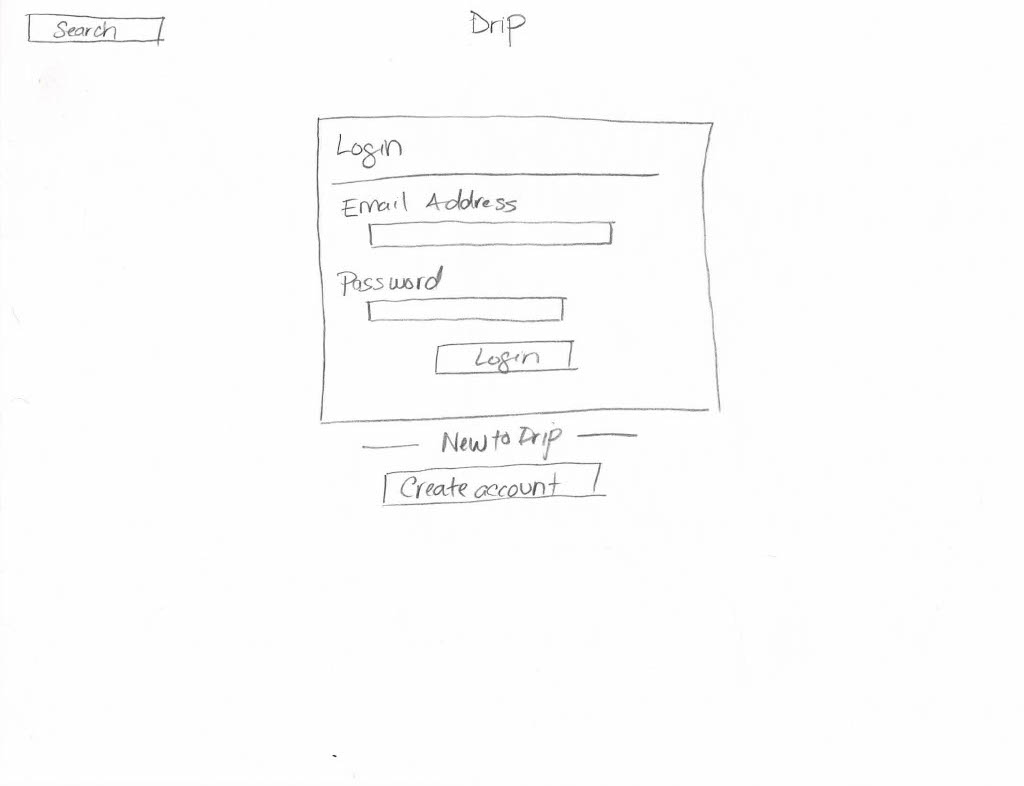 Search
Drip
Login
Email Address
Password
Login
New to Drip
Create account